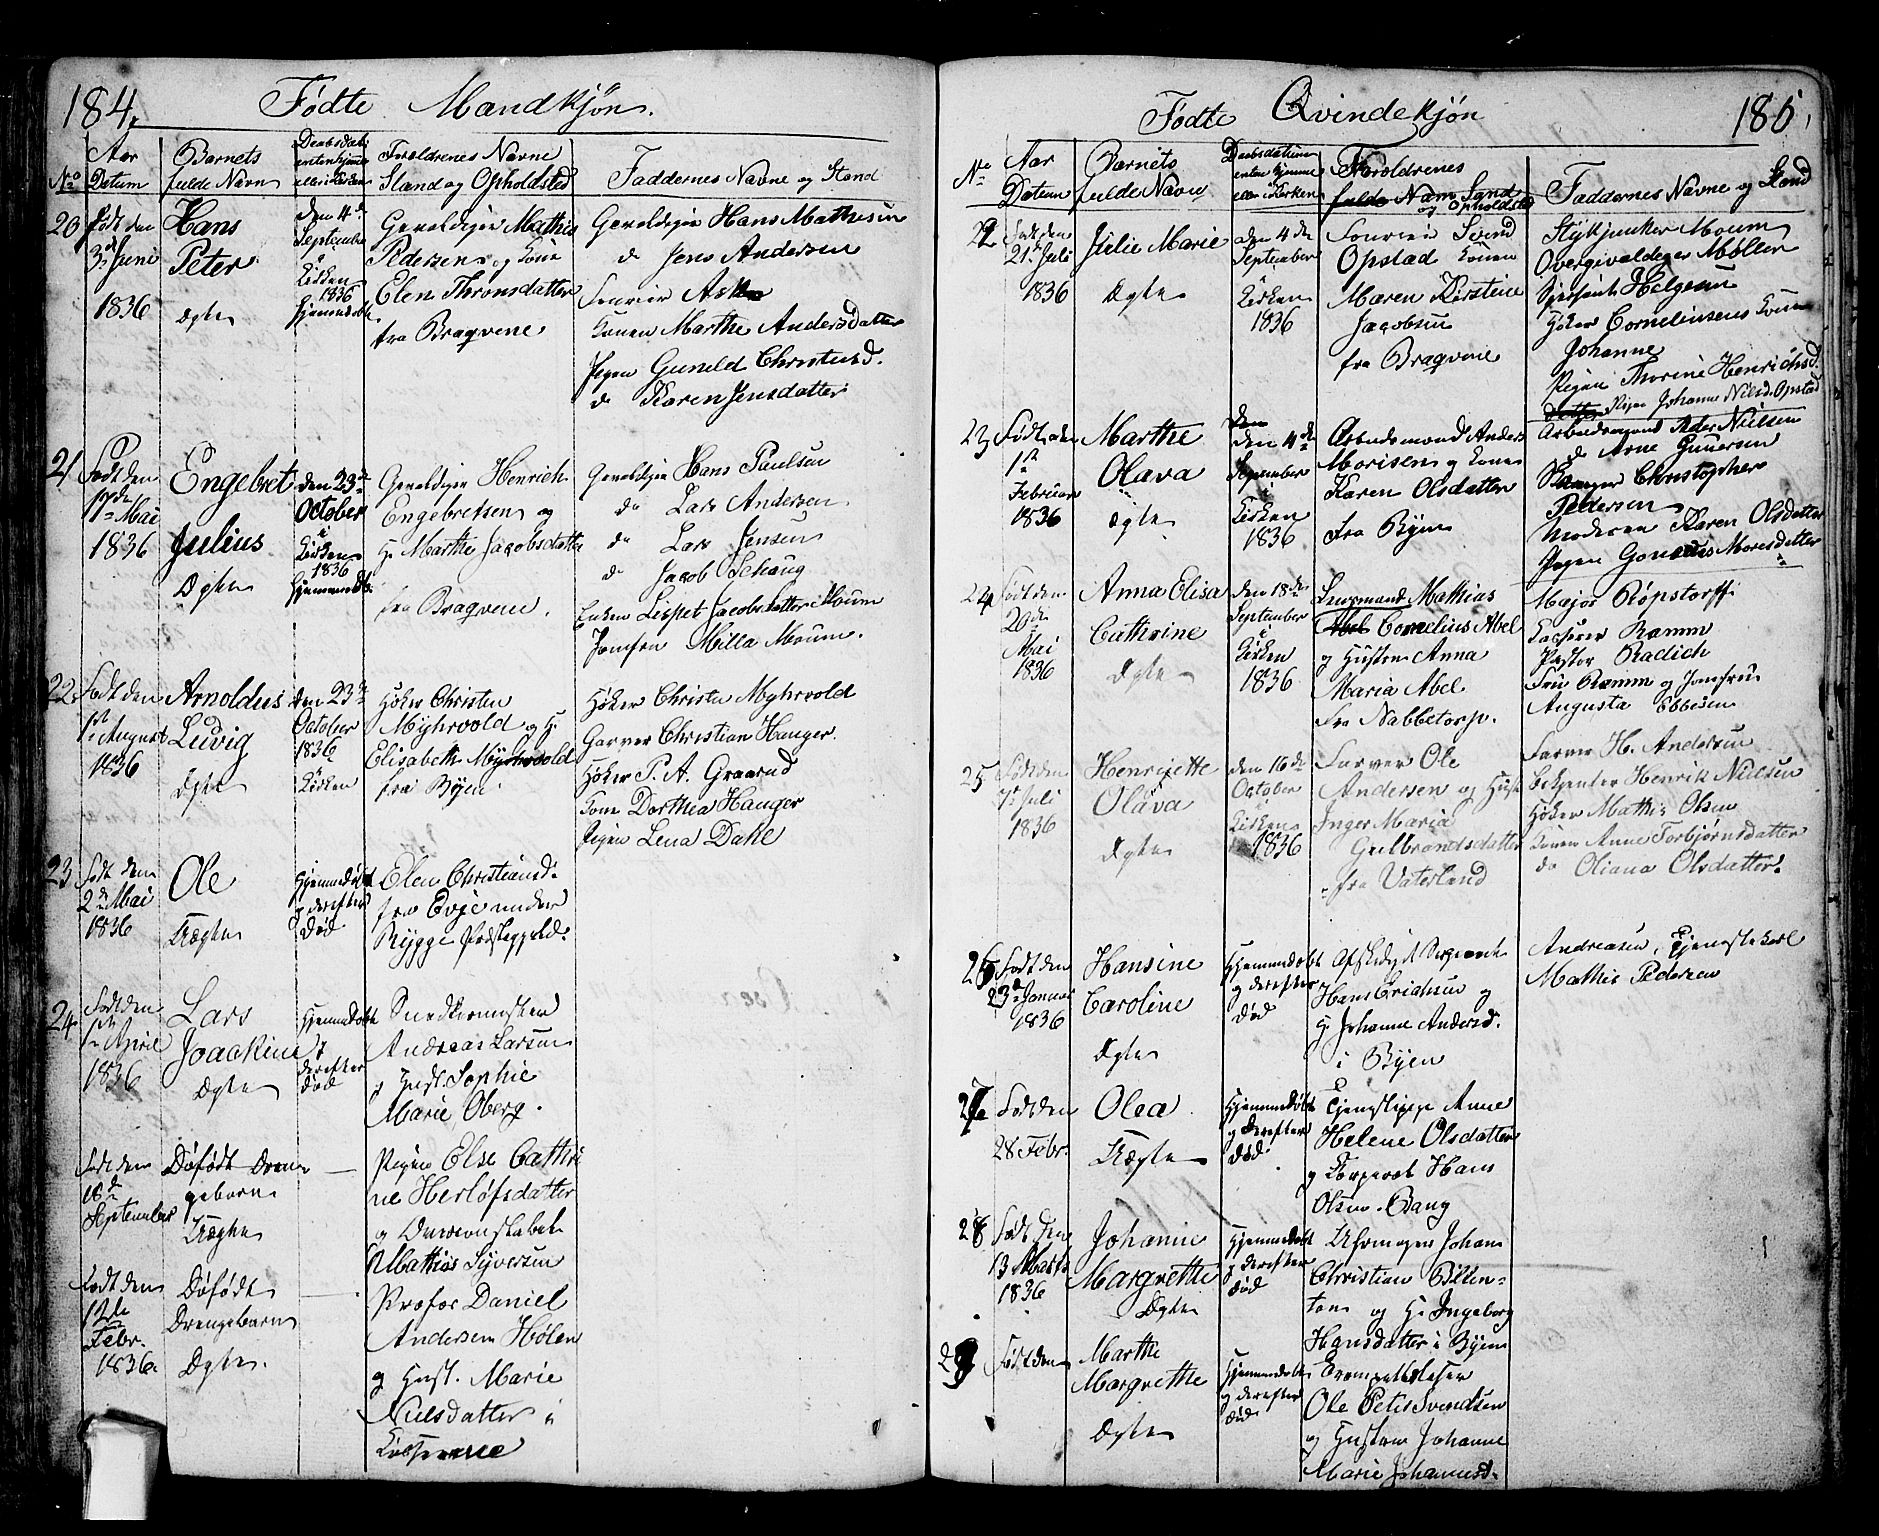 184.
Fødte Mandkjøn.
No
Aar Datum
Barnets fulde Navn
Daabsdat: enten hjemme eller i Kirken
Forældrenes Navne Stand og Opholdsted
Faddernes Navne og Stand
20
Født den
3d Juni
1836
Hans
Peter
Ægte
den 4de
September
i
Kirken
1836
hjemmedøbt
Geveldigen Mathis
Pedersen og Kone
Elen Thronsdatter
fra Bragvene
Geveldigen Hans Mathesen
do Jens Andersen
Ask
Konen Marthe Andersdatter
Pigen Gunild Christensd.
do Karen Jensdatter
21
Født den
17de Mai
1836
Engebret
Julius
Ægte
den 23de
October
i
Kirken
1836
Hjemmedbt
Geveldigen Henrich
Engebretsen og
H. Marthe Jacobsdatter
fra Bragvene.
Geveldigen Hans Paulsen
do Lars Andersen
do Lars Jensen
do Jacob Schaug
Enken Lispet Jacobsdatter Moum
Jomfru Milla Moum.
22.
Født den
1st August
1836
Arnoldus
Ludvig
Ægte
den 23de
October
1836
i
Kirken
Høker Christen
Myhrvold og H.
Elisabeth Myhrvold
fra Byen
Høker Christen Myhrvold
Garver Christian Hauger.
Høker P. A. Graarud
Kone Dorthea Hauger
Pigen Lena Dahl
23
Født den
2den Mai
1836
Ole
Uægte
Hjemmedøbt
og derefter
død
Elen Christiansd:
fra Evje under
Rygge Præstegjeld.
24.
Født den
1st April
1836
Lars
Joackim
Ægte
Hjemmedøbt
og
derefter
død
Snedkermester
Andreas Larsen
og Hust. Sophie
Marie Oberg.
Født den
18de
September
Døfødt Drenge
geborn
Uægte
Pigen Else Cathri
ne Herlofsdatter
og
Mathias Syversen
Født den
12te
Febr.
1836.
Døfødt
Drengebarn
Ægte.
Daniel
Andersen Hølen
og Hust. Marie
Nielsdatter i

185.
Fødte Qvindekjøn
No
Aar Datum
Barnets fulde Navn
Daabsdatum enten hjemme eller i Kirken
Forældrenes fulde Navn Stand og Opholdsted
Faddernes Navne og Stand
22
Født den
21de Juli
1836
Julie Marie
Ægte
den 4de
September
i
Kirken
1836
Svend
Opstad Konen
Maren Kirstine
Jacobsen
fra Bragvene
Stykjunker Moum
Overgivaldiger Møller
Serjeant Helgesen
Høker Cornelinsens Kone
Johanne
Pigen Thorine Henrichsd.
Pigen Johanne Nilsd. Opstad
23
Født den
1st
Februar
1836
Marthe
Olava
Ægte
den 4de
September
i
Kirken
1836
Arbeidsmand Anders
Morisen og Konen
Karen Olsdatter
Fra Byen
Arbeidsmand Peder Nielsen
do Arne Gunersen
Christopher
Pedersen
Moderen Karen Olsdatter
Pigen Moresdatter
24
Født den
20de
Mai
1836
Anna Elisa
Cathrine
Ægte
den 18de
September
i
Kirken
1836
Lensmand Mathias
Cornelius Abel
og Hustru Anna
Maria Abel
fra Nabbetorp.
Major Röpstorff
Kasserer Ramm
Pastor Radich
Fru Ramm og Jomfru
Augusta Ebbesen
25
Født den
7de Juli
1836
Henriette
Olava
Ægte
den 16de
October
i
Kirken
1836
Farver Ole
Andersen og Hust
Inger Maria
Gulbrandsdatter
fra Vaterland
Farver H. Andersen
Henrik Nielsen
Høker Mathis Olsen
Konen Anne Torbjørnsdatter
do Oliana Olsdatter.
26
Født den
23de Januar
1836
Hansine
Caroline
Ægte
Hjemmedøbt
og derefter
død
Afskediget Sergeant
Hans Erichsen og
H. Johanne Andersd.
i Byen
Andreasen, Tjenestekarl
Mathis Pedersen
27
Født den
28 Febr.
Olea
Uægte
Hjemmedøbt
og derefter
død
Tjenestepige Anne
Helene Olsdatter
og Korporal Hans
Olsen Bang
28
Født den
13 Marts
1836
Johanne
Margrethe
Ægte
Hjemmedøbt
og derefter
død
Uhrmager Johan
Christian Billen-
ton og H. Ingeborg
Hansdatter i Byen
29
Født den
Marthe
Margrethe
Ægte
Hjemmedøbt
og derefter
død
Trompetblæser
Ole Petis Svendsen
og Hustru Johanne
Marie Johannesd.